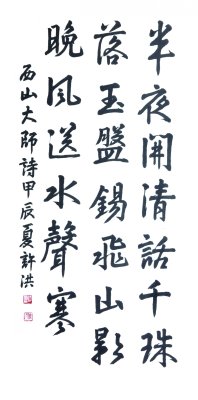 半夜開清話千珠
落玉盤錫飛山影
晚風送水聲寒
西山大師詩甲辰夏許洪